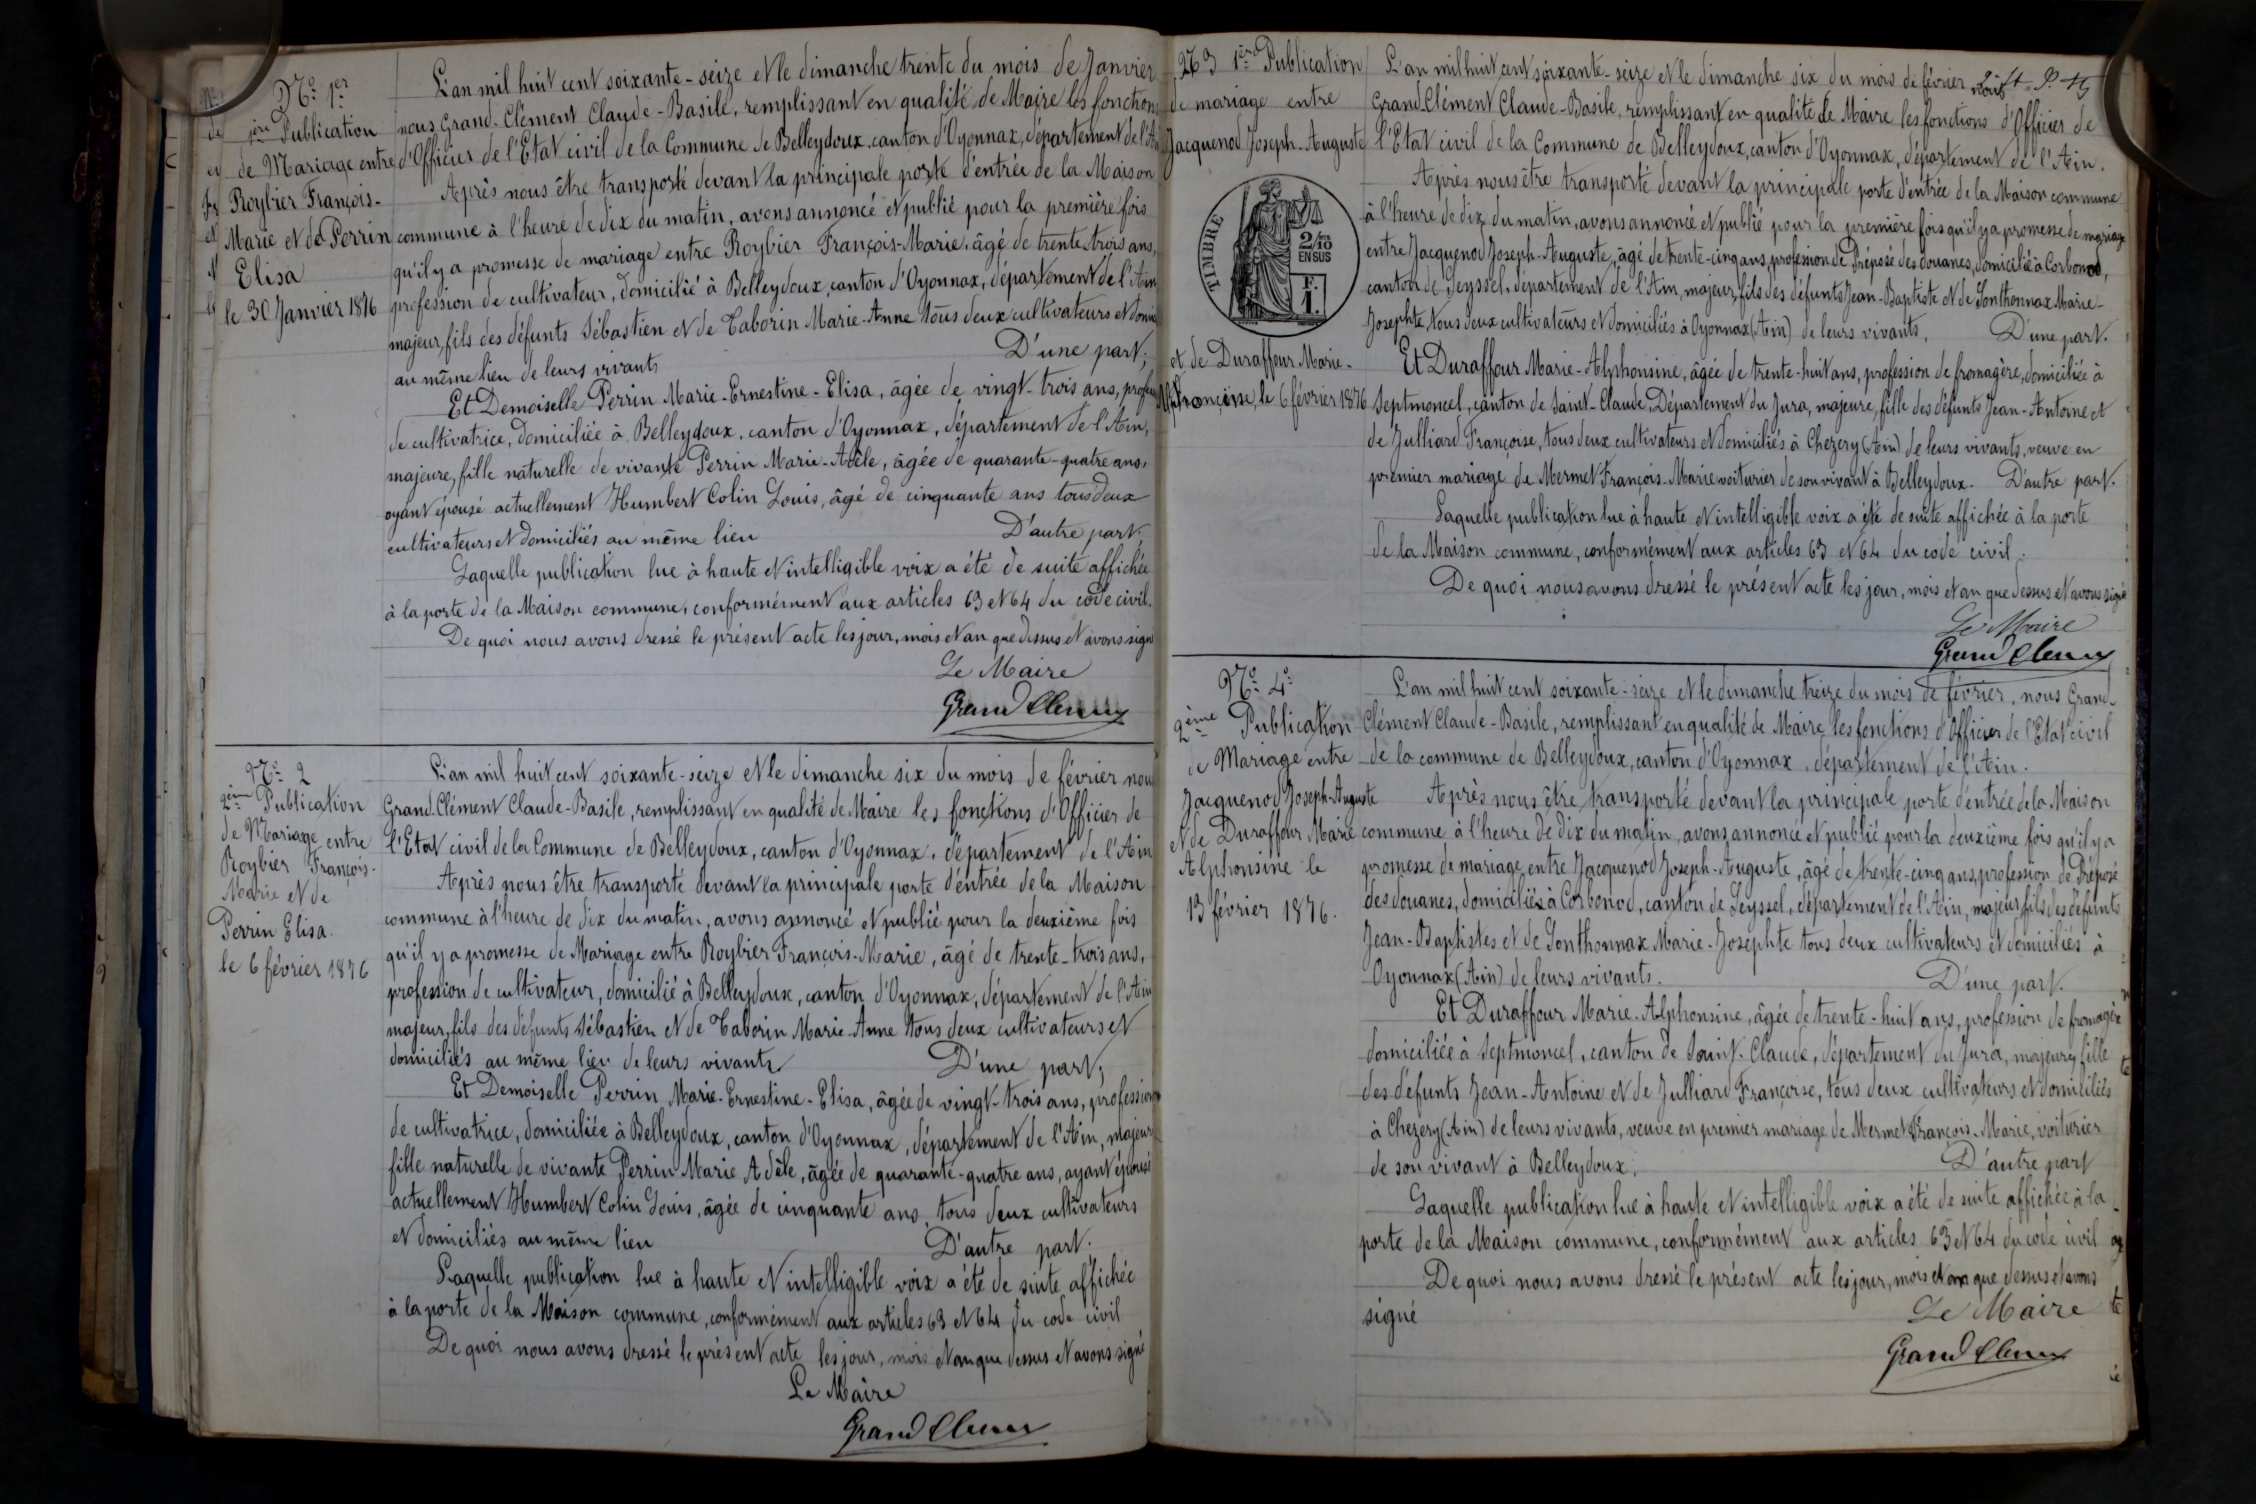 No 1er
1ère Publication
de Mariage entre
Roybier François-
Marie et de Perrin
Elisa
le 30 Janvier 1876
L'an mil huit cent soixante-seize et le dimanche trente du mois de Janvier
nous Grand-Clément Claude-Basile, remplissant en qualité de Maire les fonctions
d'Officier de l'Etat civil de la Commune de Belleydoux, canton d'Oyonnax, département de l'Ain
Après nous être transporté devant la principale porte d'entrée de la Maison
commune à l'heure de dix du matin, avons annoncé et publié pour la première fois
qu'il y a promesse de mariage entre Roybier François-Marie, âgé de trente trois ans,
profession de cultivateur, domicilié à Belleydoux, canton d'Oyonnax, département de l'Ain
majeur, fils des défunts Sébastien et de Taborin Marie-Anne tous deux cultivateurs et domi
au même lieu de leurs vivants D'une part;
Et Demoiselle Perrin Marie-Ernestine-Elisa, âgée de vingt-trois ans, profess
de cultivatrice, domiciliée à Belleydoux, canton d'Oyonnax, département de l'Ain,
majeure, fille naturelle de vivante Perrin Marie-Adèle, âgée de quarante-quatre ans,
ayant épousé actuellement Humbert Colin Louis, âgé de cinquante ans tous deux
cultivateurs et domiciliés au même lieu D'autre part.
Laquelle publication lue à haute et intelligible voix a été de suite affichée
à la porte de la Maison commune, conformément aux articles 63 et 64 du code civil.
De quoi nous avons dressé le présent acte les jour, mois et an que dessus et avons signé
Le Maire
Grand Clément
No 2
2ème Publication
de Mariage entre
Roybier François-
Marie et de
Perrin Elisa.
le 6 février 1876
L'an mil huit cent soixante-seize et le dimanche six du mois de février nous
Grand-Clément Claude-Basile, remplissant en qualité de Maire les fonctions d'Officier de
l'Etat civil de la Commune de Belleydoux, canton d'Oyonnax, département de l'Ain
Après nous être transporté devant la principale porte d'entrée de la Maison
commune à l'heure de dix du matin, avons annoncé et publié pour la deuxième fois
qu'il y a promesse de Mariage entre Roybier François-Marie, âgé de trente-trois ans,
profession de cultivateur, domicilié à Belleydoux, canton d'Oyonnax, département de l'Ain
majeur, fils des défunts Sébastien et de Taborin Marie-Anne tous deux cultivateurs et
domiciliés au même lieu de leurs vivants D'une part;
Et Demoiselle Perrin Marie-Ernestine-Elisa, âgée de vingt-trois ans, profession
de cultivatrice, domiciliée à Belleydoux, canton d'Oyonnax, département de l'Ain, majeure
fille naturelle de vivante Perrin Marie Adèle, âgée de quarante-quatre ans, ayant épousé
actuellement Humbert Colin Louis, âgée de cinquante ans, tous deux cultivateurs
et domiciliés au même lieu D'autre part.
Laquelle publication lue à haute et intelligible voix a été de suite affichée
à la porte de la Maison commune, conformément aux articles 63 et 64 du code civil
De quoi nous avons dressé le présent acte les jour, mois et an que dessus et avons signé
Le Maire
Grand Clément
No 3 1ère Publication
de mariage entre
Jacquenod Joseph-Auguste
TIMBRE
2/10
EN SUS
F.
1.
et de Duraffour Marie-
Françoise, le 6 février 1876
L'an mil huit cent soixante-seize et le dimanche six du mois de février nous
Grand-Clément Claude-Basile, remplissant en qualité de Maire les fonctions d'Officier de
l'Etat civil de la Commune de Belleydoux, canton d'Oyonnax, département de l'Ain.
Après nous être transporté devant la principale porte d'entrée de la Maison commune
à l'heure de dix du matin, avons annoncé et publié pour la première fois qu'il y a promesse de mariage
entre Jacquenod Joseph-Auguste, âgé de trente-cinq ans, profession de Préposé des douanes, domicilié à Corbonod,
canton de Seyssel, département de l'Ain, majeur, fils des défunts Jean-Baptiste et de Gonthonnax Marie-
Josephte, tous deux cultivateurs et domiciliés à Oyonnax (Ain) de leurs vivants. D'une part.
Et Duraffour Marie-Alphonsine, âgée de trente-huit ans, profession de fromagère, domiciliée à
Septmoncel, canton de Saint-Claude, Département du Jura, majeure, fille des défunts Jean-Antoine et
de Julliard Françoise, tous deux cultivateurs et domiciliés à Chezery (Ain) de leurs vivants, veuve en
premier mariage de Mermet François-Marie voiturier de son vivant à Belleydoux. D'autre part.
Laquelle publication lue à haute et intelligible voix a été de suite affichée à la porte
de la Maison commune, conformément aux articles 63 et 64 du code civil.
De quoi nous avons dressé le présent acte les jour, mois et an que dessus et avons signé
Le Maire
Grand Clément
No 4.
2ème Publication
de Mariage entre
Jacquenod Joseph-Auguste
et de Duraffour Marie
Alphonsine le
13 février 1876.
L'an mil huit cent soixante-seize et le dimanche treize du mois de février, nous Grand-
Clément Claude-Basile, remplissant en qualité de Maire les fonctions d'Officier de l'Etat civil
de la commune de Belleydoux, canton d'Oyonnax, département de l'Ain.
Après nous être transporté devant la principale porte d'entrée de la Maison
commune à l'heure de dix du matin, avons annoncé et publié pour la deuxième fois qu'il y a
promesse de mariage entre Jacquenod Joseph-Auguste, âgé de trente-cinq ans, profession de Préposé
des douanes, domiciliés à Corbonod, canton de Seyssel, département de l'Ain, majeur, fils des défunts
Jean-Baptistes et de Gonthonnax Marie-Josephte tous deux cultivateurs et domiciliés à
Oyonnax (Ain) de leurs vivants. D'une part.
Et Duraffour Marie-Alphonsine, âgée de trente-huit ans, profession de fromagère
domiciliée à Septmoncel, canton de Saint-Claude, département du Jura, majeure, fille
des défunts Jean-Antoine et de Julliard Françoise, tous deux cultivateurs et domiciliés
à Chezery (Ain) de leurs vivants, veuve en premier mariage de Mermet François-Marie, voiturier
de son vivant à Belleydoux. D'autre part
Laquelle publication lue à haute et intelligible voix a été de suite affichée à la
porte de la Maison commune, conformément aux articles 63 et 64 du code civil
De quoi nous avons dressé le présent acte les jour, mois et an que dessus et avons
signé
Le Maire
Grand Clément